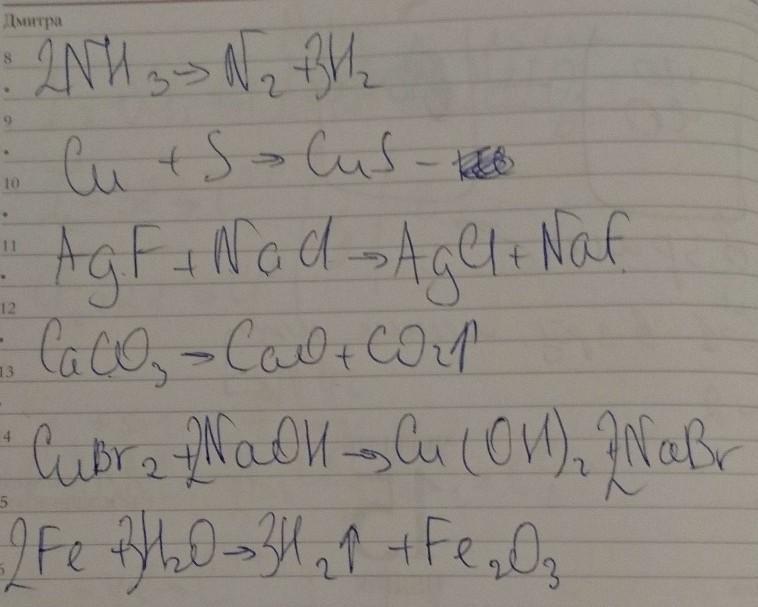 Дмитра
8 2NH₃→N₂+3H₂
9
10 Cu + S → CuS -
11 AgF + NaCl → AgCl + NaF
12
13 CaCO₃ → CaO + CO₂↑
4 CuBr₂ + 2NaOH → Cu(OH)₂ + 2NaBr
5
2Fe + 3H₂O → 3H₂↑ + Fe₂O₃